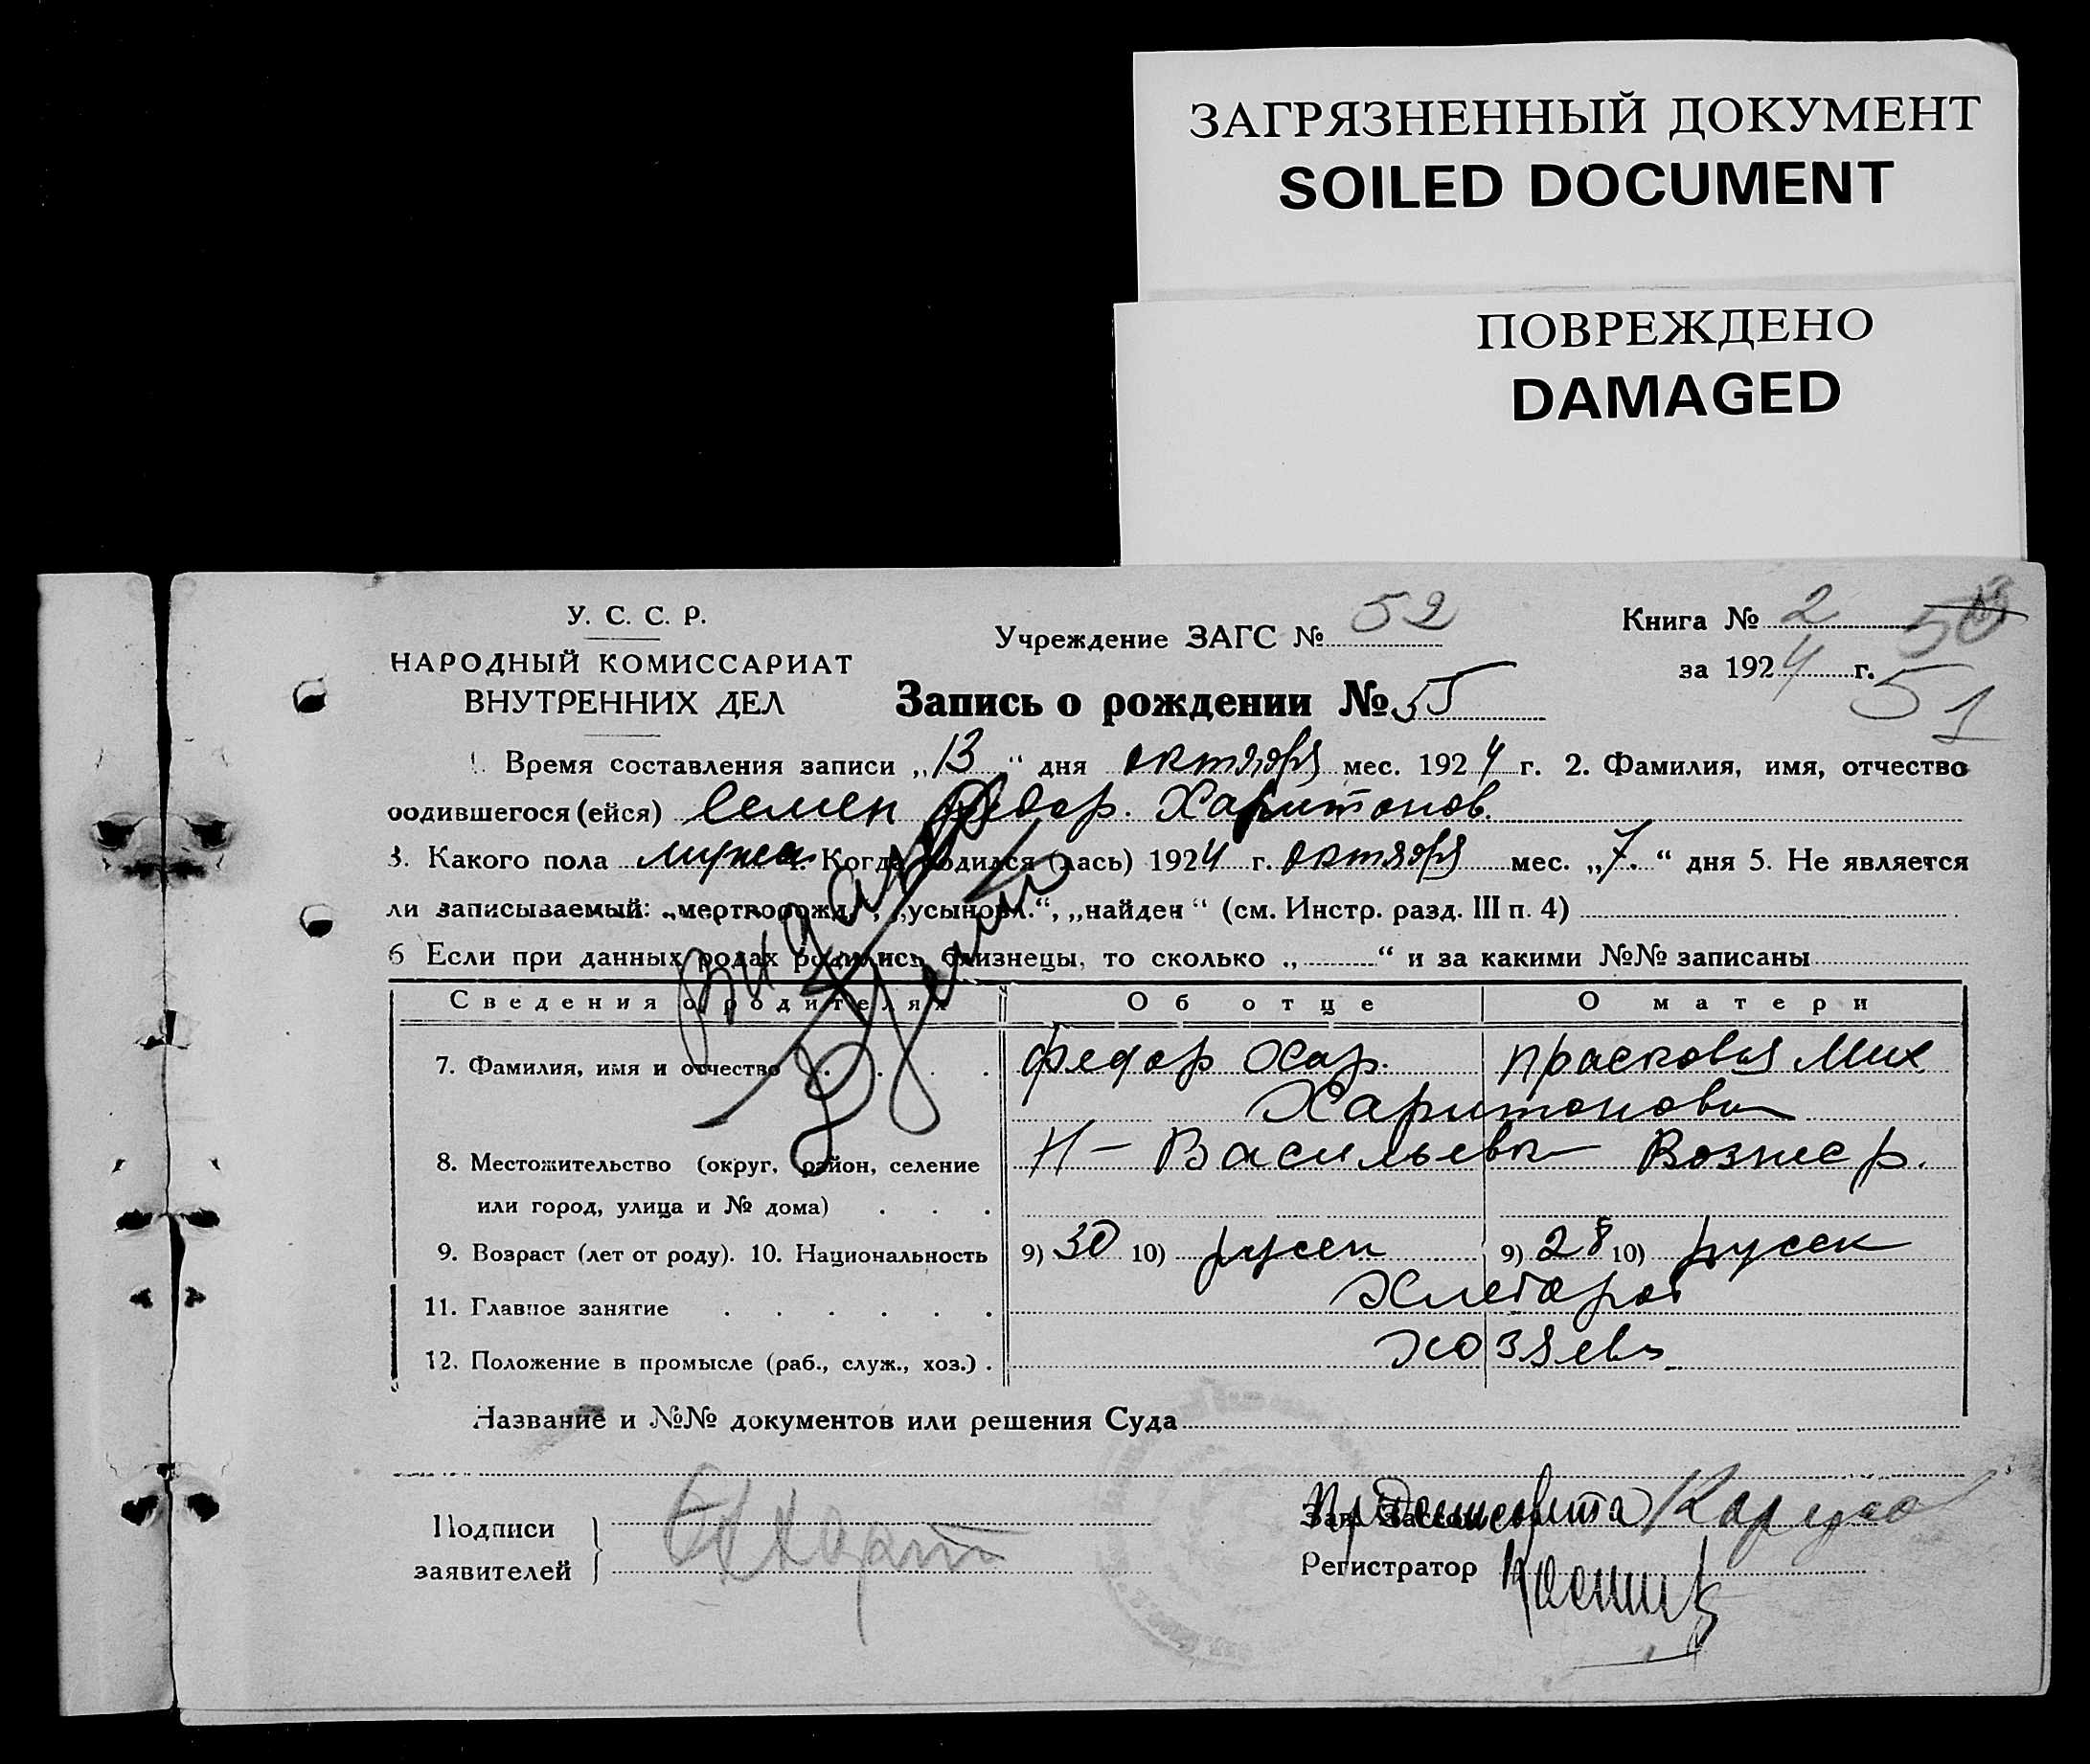 ЗАГРЯЗНЕННЫЙ ДОКУМЕНТ
SOILED DOCUMENT
ПОВРЕЖДЕНО
DAMAGED
У. С. С. Р.
НАРОДНЫЙ КОМИССАРИАТ
ВНУТРЕННИХ ДЕЛ
Учреждение ЗАГС № 52
Книга № 2 50
за 1924 г. 51
Запись о рождении № 55
1. Время составления записи „13“ дня октября мес. 1924 г. 2. Фамилия, имя, отчество
родившегося (ейся) Семен Федор. Харитонов.
3. Какого пола мужск 4. Когда родился (лась) 1924 г. октября мес. „7.“ дня 5. Не является
ли записываемый: „мертворожд.“, „усыновл.“, „найден“ (см. Инстр. разд. III п. 4)
6 Если при данных родах родились близнецы, то сколько „ “ и за какими №№ записаны
Сведения о родителях Об отце О матери
7. Фамилия, имя и отчество Федор Хар. Прасковья Мих
Харитоновы
8. Местожительство (округ, район, селение Н-Васильевка Вознес р.
или город, улица и № дома)
9. Возраст (лет от роду). 10. Национальность 9) 30 10) русск 9) 28 10) русск
11. Главное занятие Хлебороб
12. Положение в промысле (раб., служ., хоз.) хозяева
Название и №№ документов или решения Суда
Подписи
заявителей
Зав. Загсом
Регистратор